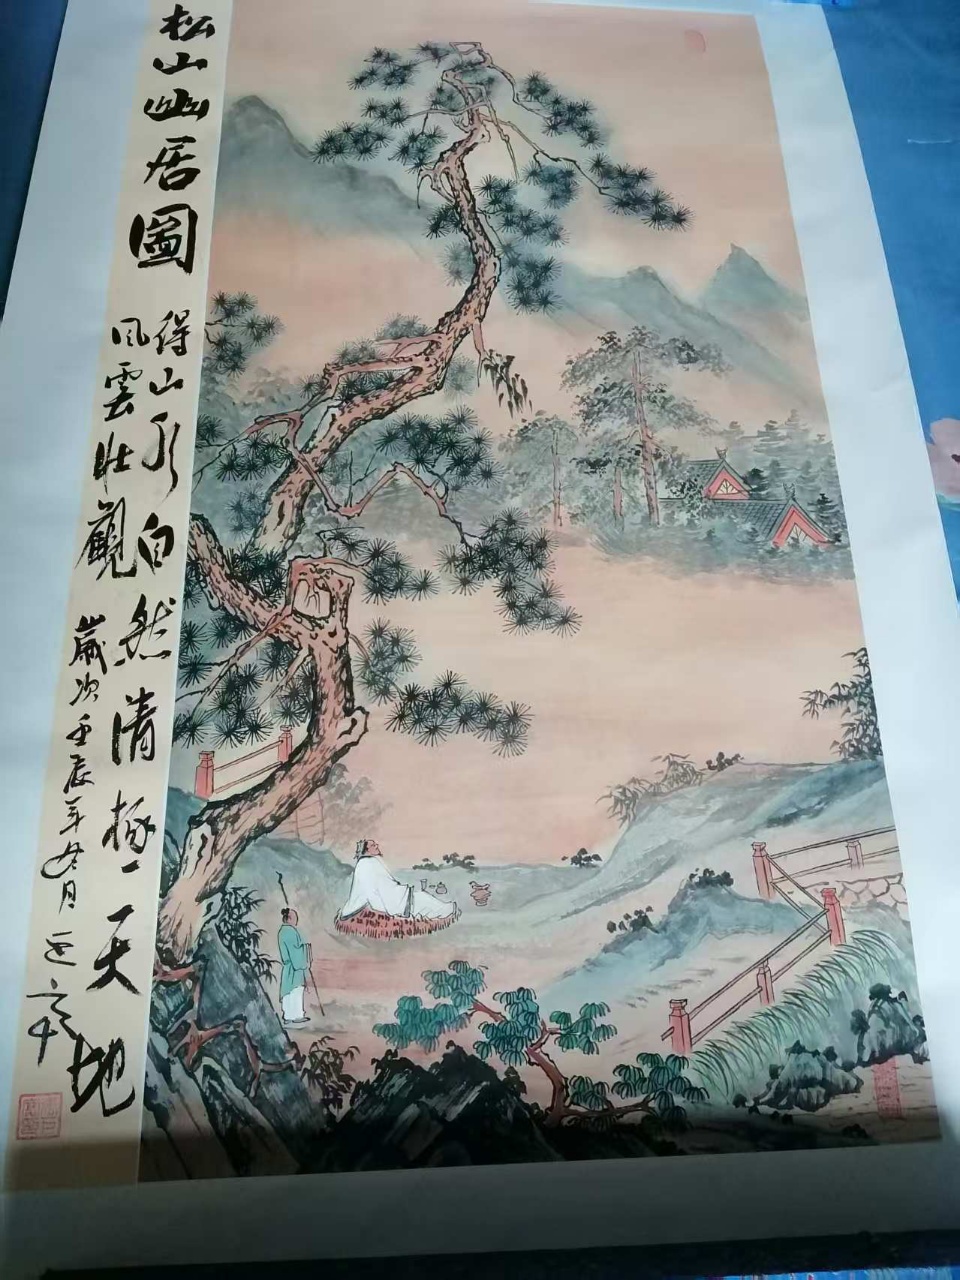 松山幽居圖
得山水自然清極一天地
風雲壯觀 歲次壬辰年月